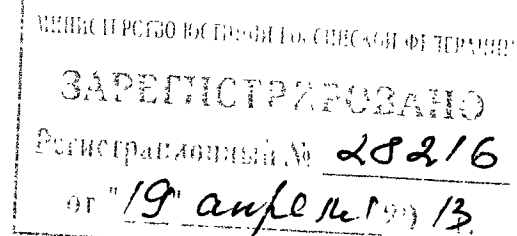 МИНИСТЕРСТВО ЮСТИЦИИ РОССИЙСКОЙ ФЕДЕРАЦИИ
ЗАРЕГИСТРИРОВАНО
Регистрационный № 28216
от "19" апреля 2013